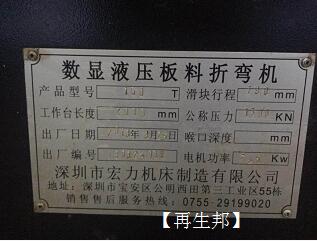 数显液压板料折弯机
产品型号 T 滑块行程 mm
工作台长度 mm 公称压力 KN
出厂日期 喉口深度 mm
出厂编号 电机功率 Kw
深圳市宏力机床制造有限公司
地址：深圳市宝安区公明西田第三工业区55栋
销售售后服务热线：0755-29199020
【再生邦】